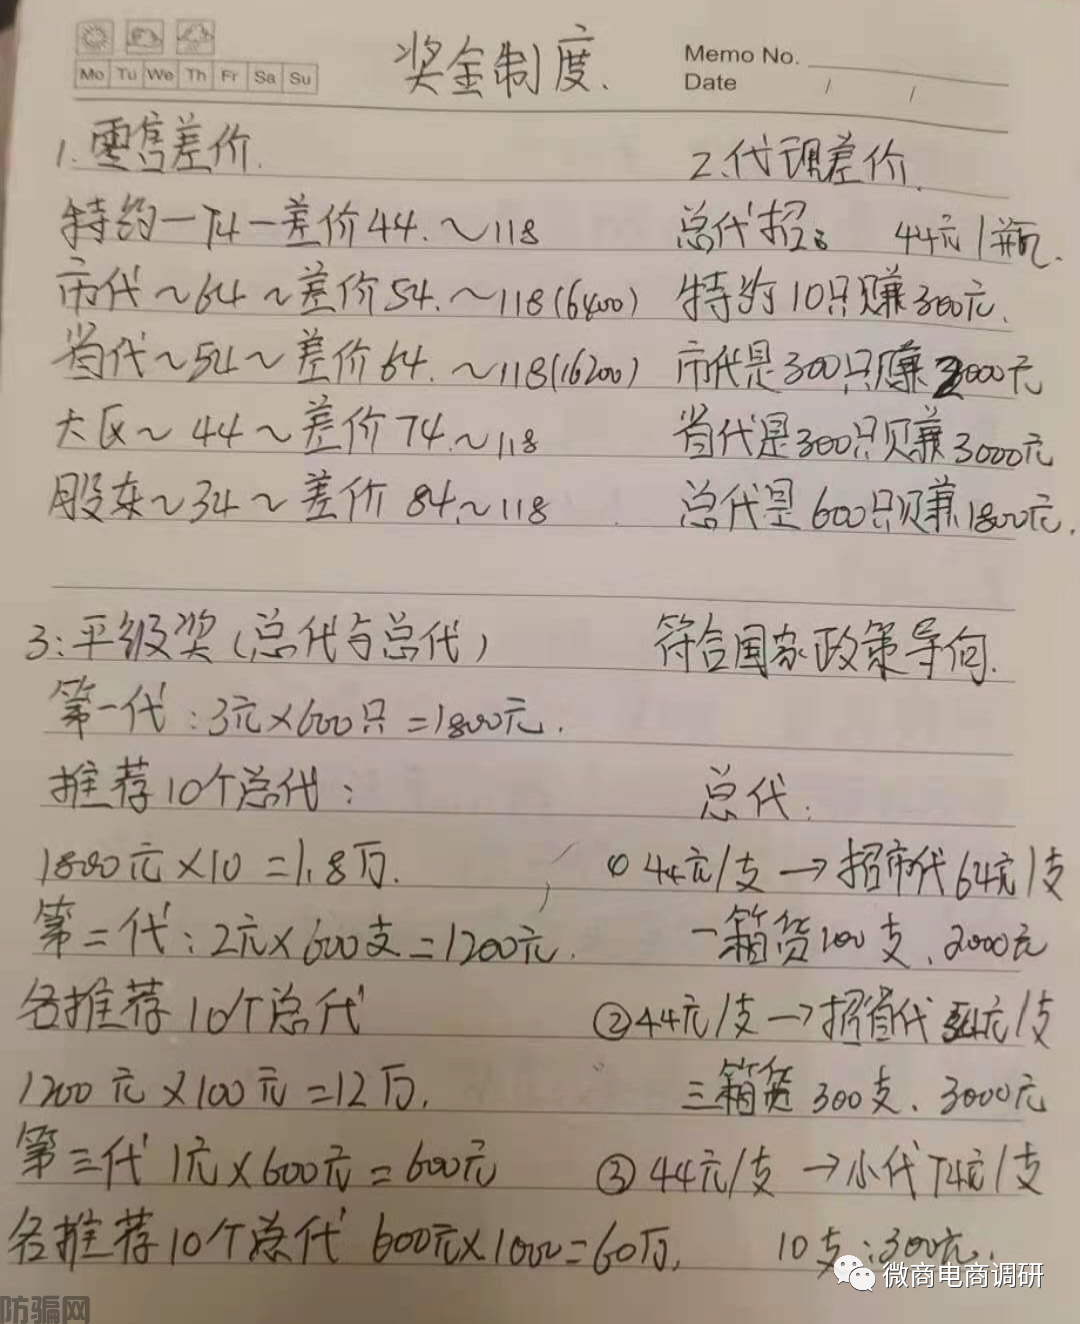 奖金制度.
Memo No.
Mo Tu We Th Fr Sa Su
Date / /
1.零售差价.
2.代理差价.
特约一74一差价44.～118
总代招: 44元/瓶.
市代～64～差价54.～118(6400)
特约10只赚300元.
省代～54～差价64.～118(16200)
市代是300只赚2000元
大区～44～差价74.～118
省代是300只赚3000元
股东～34～差价84.～118
总代是600只赚1800元.
3:平级奖(总代与总代)
符合国家政策导向.
第一代:3元×600只=1800元.
推荐10个总代:
总代:
1800元×10=1.8万.
① 44元/支→招市代64元/支
第二代:2元×600支=1200元.
一箱货100支、2000元
各推荐10个总代
②44元/支→招省代54元/支
1200元×100元=12万.
三箱货300支、3000元
第三代1元×600元=600元
③44元/支→小代74元/支
各推荐10个总代 600元×1000=60万.
10支:300元.
微商电商调研
防骗网